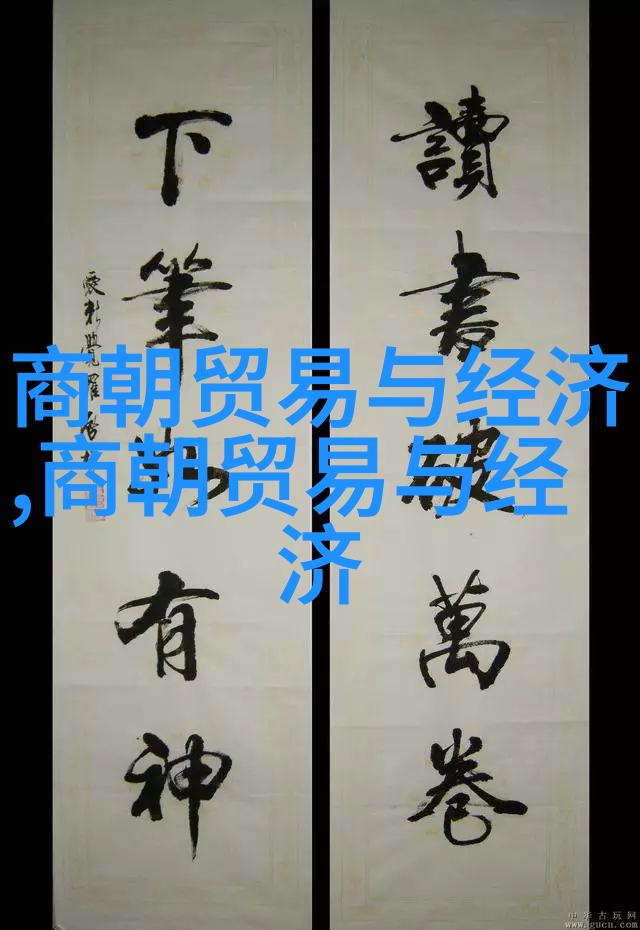 讀書破萬卷
下筆如有神
商朝贸易与经济
,商朝贸易与经
济
中华古玩网
www.gucn.com